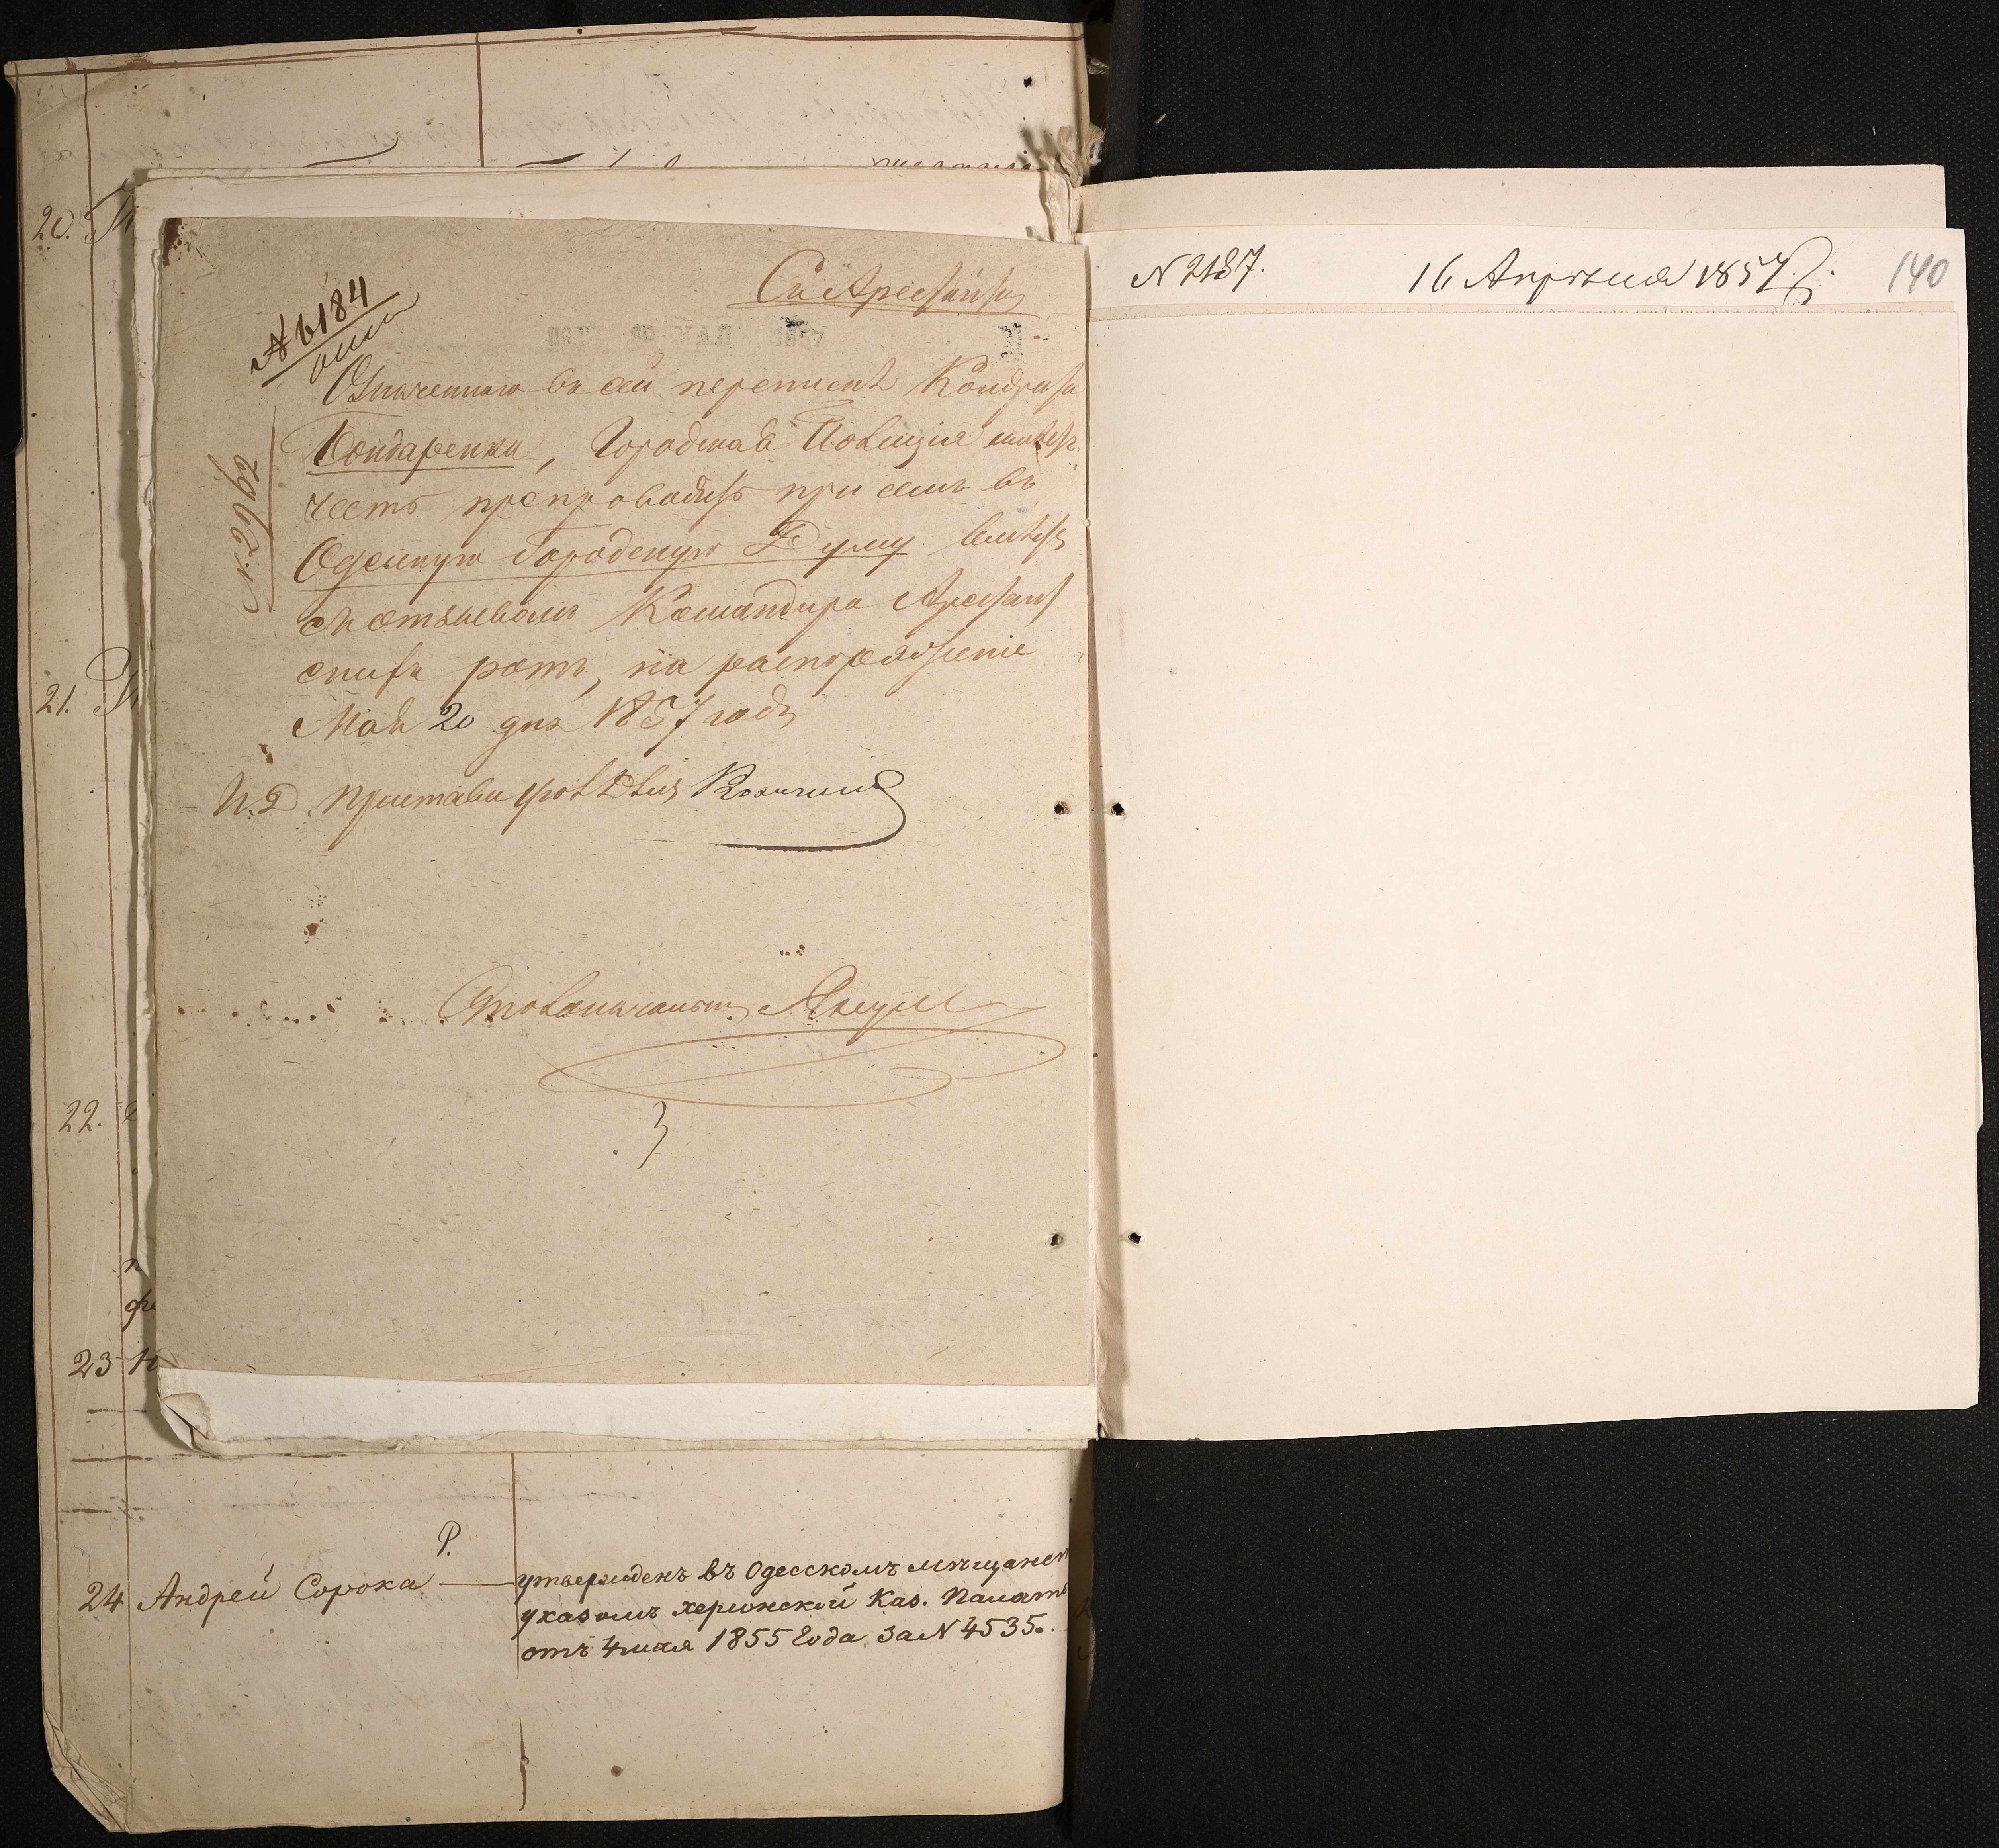 20.
21.
22.
23
Съ Арестантъ
№ 6184
Означеннаго въ сей перепискѣ Кондрата
Бондаренка, Городская Полиція имѣетъ
честь препроводить при семъ въ
Одескую Городскую Думу вмѣстѣ
съ отзывомъ Командира Арестант
скихъ ротъ, на распоряженіе
Мая 20 дня 1857 года
И. Д. Пристава
Столоначальн.
N 2187.
16 Апрѣля 1857 г.
140
24 Андрей Сорока
Р.
утвержденъ въ Одесскомъ мѣщанст
указомъ херсонской Каз. Палаты
отъ 4 мая 1855 года за N 4535.